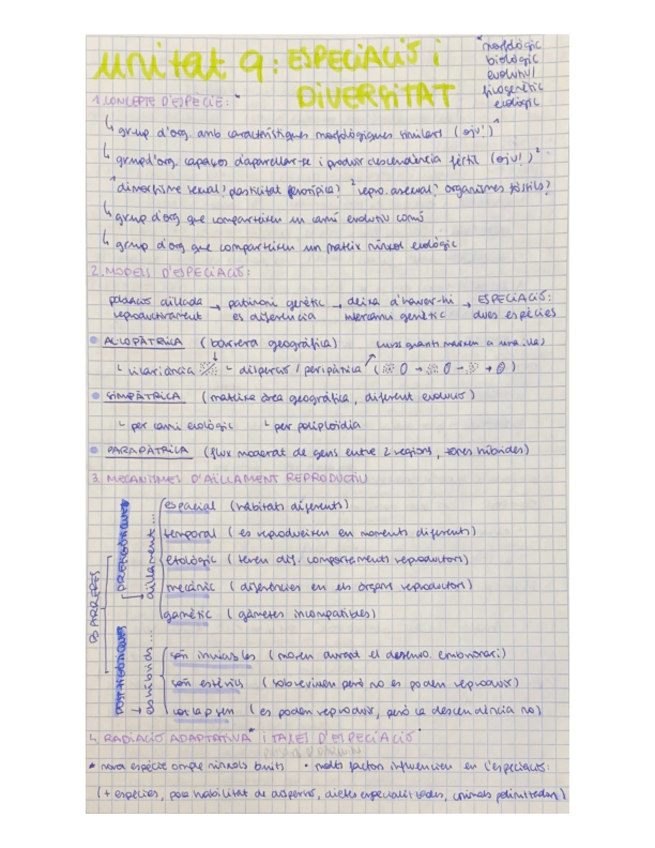 unitat 9: ESPECIACIÓ i DIVERSITAT
*morfològic
biològic
evolutiu
filogenètic
ecològic
1. CONCEPTE D'ESPÈCIE: *
↳ grup d'org. amb característiques morfològiques similars (oju!)¹
↳ grup d'org. capaços d'aparellar-se i produir descendència fèrtil (oju!)²
¹ dimorfisme sexual? plasticitat fenotípica? ² repro. asexual? organismes fòssils?
↳ grup d'org que comparteixen un camí evolutiu comú
↳ grup d'org que comparteixen un mateix nínxol ecològic
2. MODELS D'ESPECIACIÓ:
població aïllada → patrimoni genètic → deixa d'haver-hi → ESPECIACIÓ:
reproductivament es diferencia intercanvi genètic dues espècies
• AL·LOPÀTRICA (barrera geogràfica)
↳ vicariància ↳ dispersió / peripàtrica
• SIMPÀTRICA (mateixa àrea geogràfica, diferent evolució)
↳ per camí ecològic ↳ per poliploïdia
• PARAPÀTRICA (flux moderat de gens entre 2 regions, zones híbrides)
3. MECANISMES D'AÏLLAMENT REPRODUCTIU
BARRERES
PREZIGÒTIQUES
aïllament...
espacial (hàbitats diferents)
temporal (es reprodueixen en moments diferents)
etològic (tenen dif. comportaments reproductors)
mecànic (diferències en els òrgans reproductors)
gamètic (gàmetes incompatibles)
POSTZIGÒTIQUES
els híbrids...
són inviables (moren durant el desenvo. embrionari)
són estèrils (sobreviuen però no es poden reproduir)
col·lapsen (es poden reproduir, però la descendència no)
4. RADIACIÓ ADAPTATIVA* I TAXES D'ESPECIACIÓ•
* nova espècie omple nínxols buits • molts factors influencien en l'especiació:
(+ espècies, poca habilitat de dispersió, dietes especialitzades, animals pol·linitzadors)